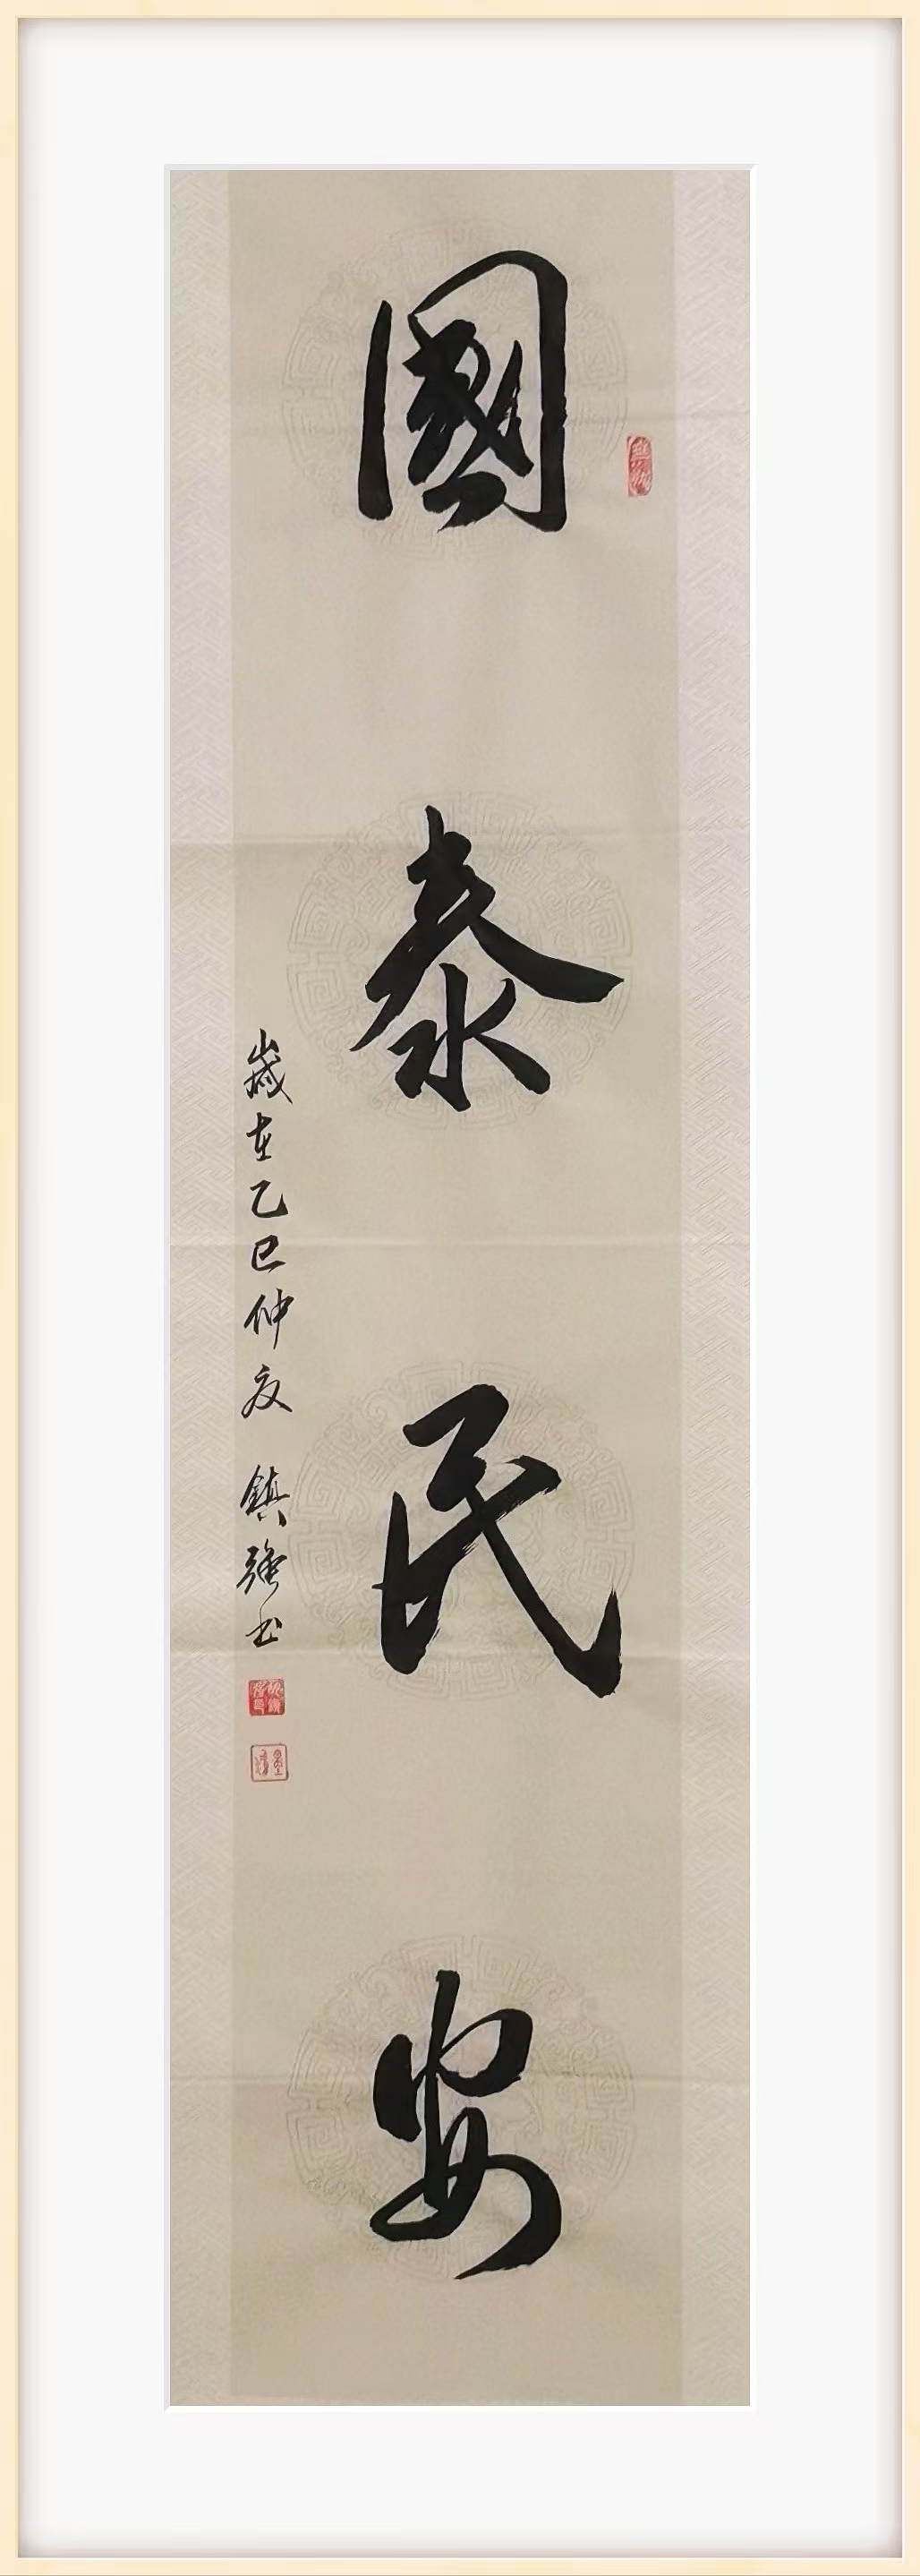 國泰民安
歲在乙巳仲夏 鎮強書